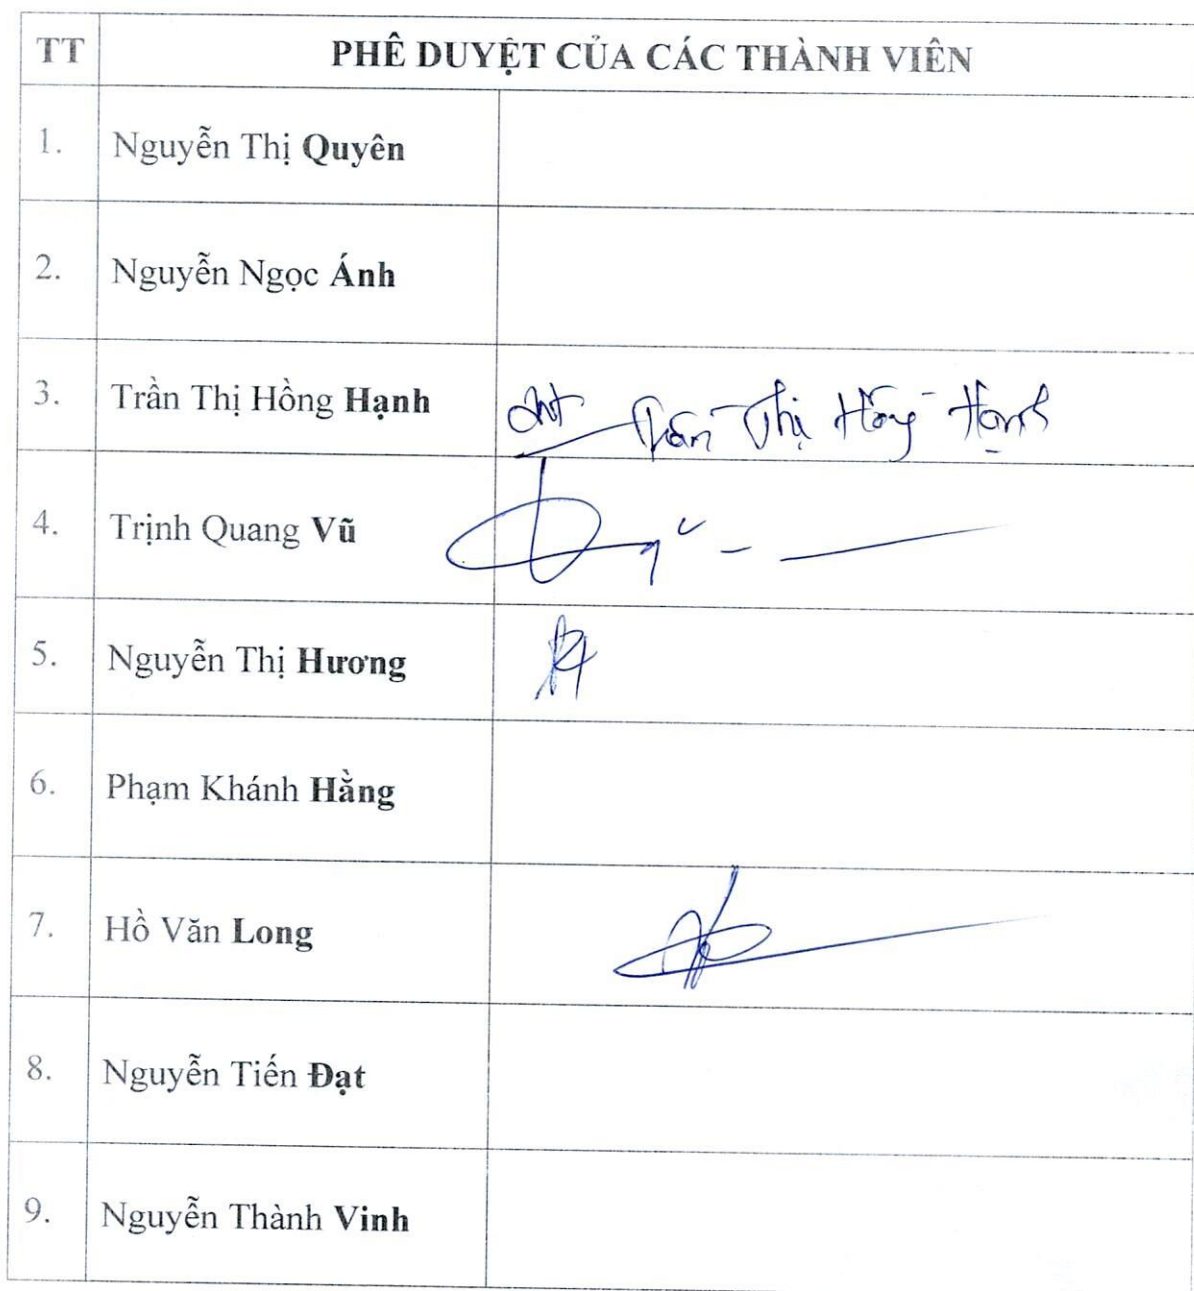 TT PHÊ DUYỆT CỦA CÁC THÀNH VIÊN
1. Nguyễn Thị Quyên
2. Nguyễn Ngọc Ánh
3. Trần Thị Hồng Hạnh Trần Thị Hồng Hạnh
4. Trịnh Quang Vũ
5. Nguyễn Thị Hương
6. Phạm Khánh Hằng
7. Hồ Văn Long
8. Nguyễn Tiến Đạt
9. Nguyễn Thành Vinh